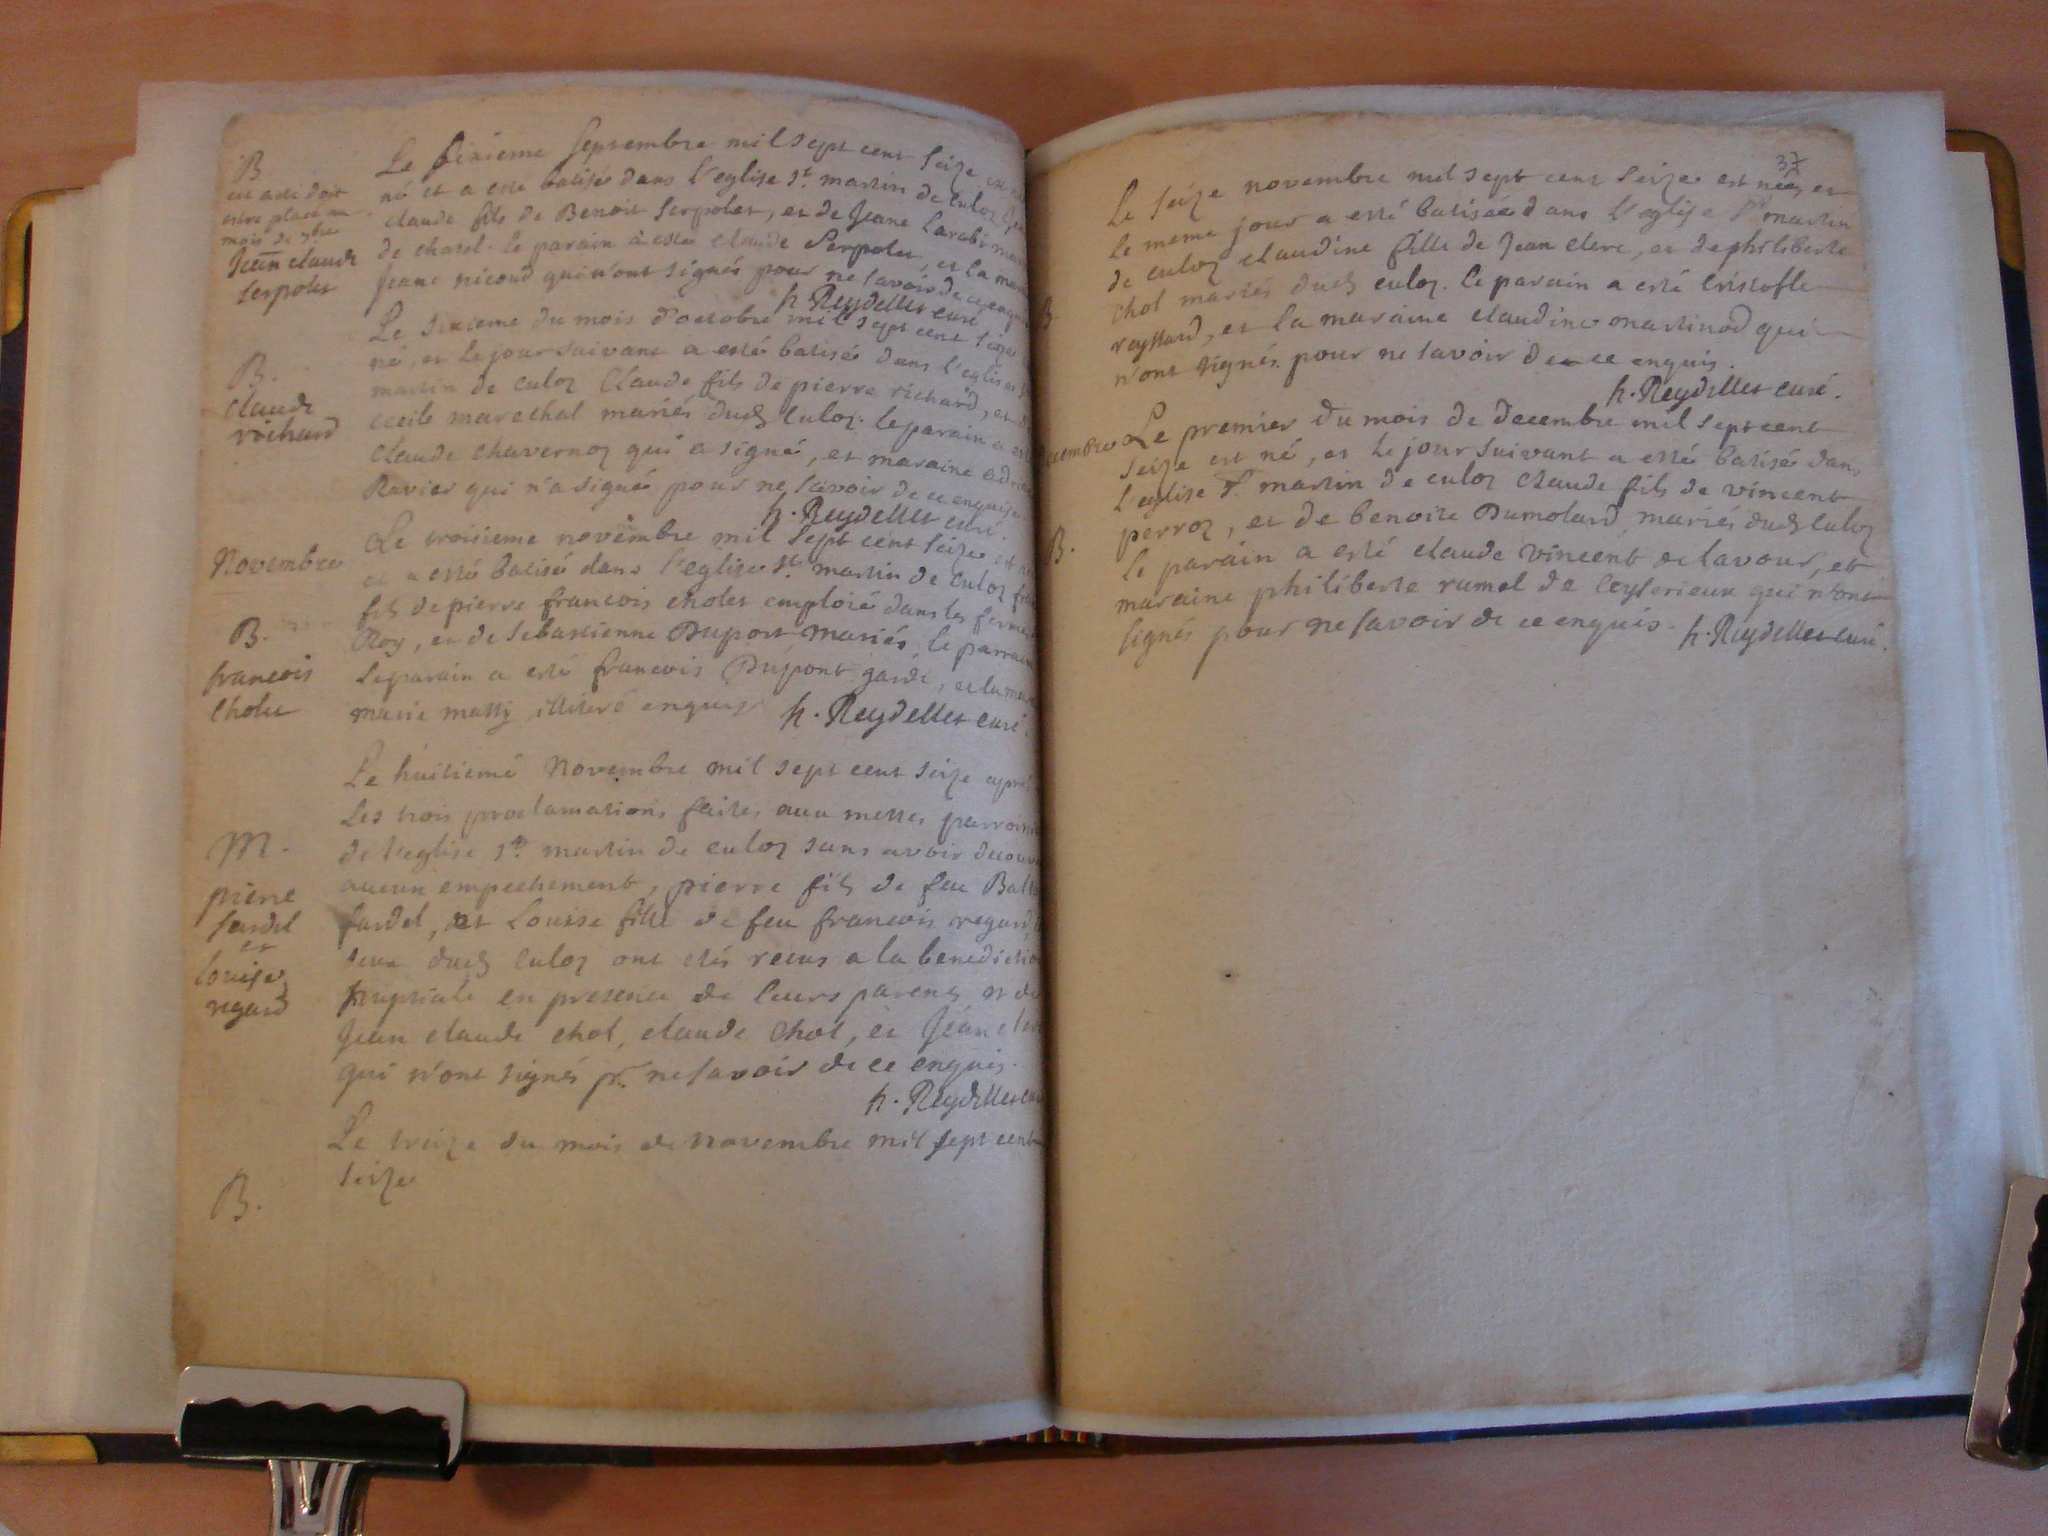 B
cet acte doit
estre placé au
mois de 7bre
Jean claude
serpolet
Le sixieme septembre mil sept cent seize est
né et a esté batisé dans l'eglise st. martin de culoz Jean
claude fils de Benoit serpolet, et de Jeane
de chatel. le parain a esté claude serpolet, et la
Jeane nicoud qui n'ont signés pour ne savoir de ce enquis
h. Reydellet curé
B.
claude
richard
Le sixieme du mois d'octobre mil sept cent seize
né, et le jour suivant a esté batisé dans l'eglise
martin de culoz Claude fils de pierre richard, et
cecile marechal mariés dud culoz. le parain a
claude chavernoz qui a signé, et maraine
Ravier qui n'a signé pour ne savoir de ce enquise
h. Reydellet curé.
Novembre
B.
francois
cholet
Le troisieme novembre mil sept cent seize est
et a esté batisé dans l'eglise st. martin de culoz
fils de pierre francois cholet emploié dans les fermes
Roy, et de sebastienne Duport mariés, le parrain
le parain a esté francois Dupont garde, et la
marie matty illiteré enquis h. Reydellet curé.
M.
pierre
fardel
et
louise
regard
Le huitieme Novembre mil sept cent seize apres
Les trois proclamations faites aux messes
de l'eglise st. martin de culoz sans avoir
aucun empechement, pierre fils de feu
fardel, et Louise fille de feu francois regard,
dud culoz ont estés recus a la benediction
nuptiale en presence de leurs parens et de
Jean claude chol, claude chol, et Jean
qui n'ont signés pr. ne savoir de ce enquis.
h. Reydellet curé
B.
Le treize du mois de novembre mil sept cent
seize
37
B.
Le seize novembre mil sept cent seize est née, et
le meme jour a esté batisée dans l'eglise st martin
de culoz claudine fille de Jean clerc, et de philiberte
chol mariés dud culoz. le parain a esté Cristofle
reystard, et la maraine claudine martinod qui
n'ont signés pour ne savoir de ce enquis.
h. Reydellet curé.
decembre
B.
Le premier du mois de decembre mil sept cent
seize est né, et le jour suivant a esté batisé dans
l'eglise st. martin de culoz Claude fils de vincent
perroz, et de benoite Dumolard mariés dud culoz
le parain a esté claude vincent de lavour, et
maraine philiberte rumel de Ceyserieux qui n'ont
signés pour ne savoir de ce enquis. h. Reydellet curé.